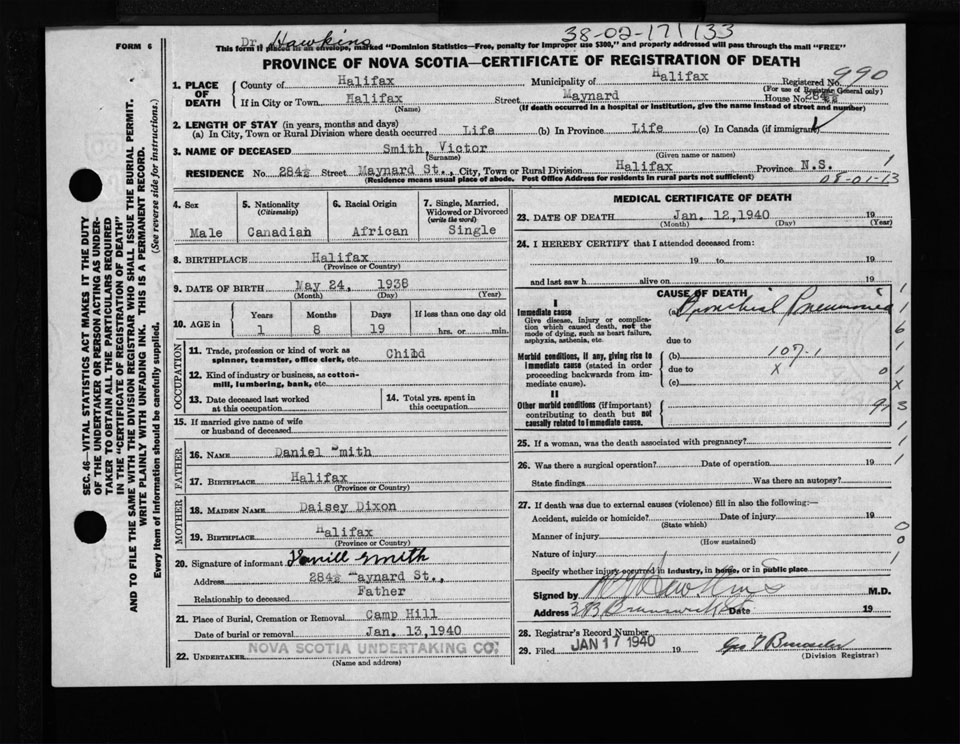 FORM 6
Dr. Hawkins
38-02-171733
This form if placed in an envelope, marked "Dominion Statistics—Free, penalty for improper use $300," and properly addressed will pass through the mail "FREE"
PROVINCE OF NOVA SCOTIA—CERTIFICATE OF REGISTRATION OF DEATH
990
1. PLACE OF DEATH
County of Halifax Municipality of Halifax Registered No.
(For use of Registrar General only)
If in City or Town Halifax Street Maynard House No. 284½
(Name) (If death occurred in a hospital or institution, give the name instead of street and number)
2. LENGTH OF STAY (in years, months and days)
(a) In City, Town or Rural Division where death occurred Life (b) In Province Life (c) In Canada (if immigrant)
3. NAME OF DECEASED Smith, Victor
(Surname) (Given name or names)
RESIDENCE No. 284½ Street Maynard St., City, Town or Rural Division Halifax Province N.S.
(Residence means usual place of abode. Post Office Address for residents in rural parts not sufficient)
08-01-13
4. Sex Male
5. Nationality (Citizenship) Canadian
6. Racial Origin African
7. Single, Married, Widowed or Divorced (write the word) Single
8. BIRTHPLACE Halifax
(Province or Country)
9. DATE OF BIRTH May 24, 1938
(Month) (Day) (Year)
10. AGE in
Years Months Days If less than one day old
1 8 19 hrs. or min.
OCCUPATION
11. Trade, profession or kind of work as spinner, teamster, office clerk, etc. Child
12. Kind of industry or business, as cotton-mill, lumbering, bank, etc.
13. Date deceased last worked at this occupation
14. Total yrs. spent in this occupation
15. If married give name of wife or husband of deceased
FATHER
16. NAME Daniel Smith
17. BIRTHPLACE Halifax
(Province or Country)
MOTHER
18. MAIDEN NAME Daisey Dixon
19. BIRTHPLACE Halifax
(Province or Country)
20. Signature of informant Smith
Address 284½ Maynard St.,
Relationship to deceased Father
21. Place of Burial, Cremation or Removal Camp Hill
Date of burial or removal Jan. 13, 1940
22. UNDERTAKER NOVA SCOTIA UNDERTAKING CO.
(Name and address)
MEDICAL CERTIFICATE OF DEATH
23. DATE OF DEATH Jan. 12, 1940 19
(Month) (Day) (Year)
24. I HEREBY CERTIFY that I attended deceased from:
19 to 19
and last saw h alive on 19
CAUSE OF DEATH
I
Immediate cause (a) Bronchial Pneumonia
Give disease, injury or complication which caused death, not the mode of dying, such as heart failure, asphyxia, asthenia, etc.
due to
Morbid conditions, if any, giving rise to immediate cause (stated in order proceeding backwards from immediate cause).
(b) 107-1
due to X
(c)
II
Other morbid conditions (if important) contributing to death but not causally related to immediate cause.
25. If a woman, was the death associated with pregnancy?
26. Was there a surgical operation? Date of operation 19
State findings Was there an autopsy?
27. If death was due to external causes (violence) fill in also the following:—
Accident, suicide or homicide? Date of injury 19
(State which)
Manner of injury
(How sustained)
Nature of injury
Specify whether injury occurred in industry, in home, or in public place
Signed by Hawkins M.D.
Address Brunswick St Date 19
28. Registrar's Record Number
29. Filed JAN 17 1940 19
(Division Registrar)
SEC. 46—VITAL STATISTICS ACT MAKES IT THE DUTY
OF THE UNDERTAKER OR PERSON ACTING AS UNDER-
TAKER TO OBTAIN ALL THE PARTICULARS REQUIRED
IN THE "CERTIFICATE OF REGISTRATION OF DEATH"
AND TO FILE THE SAME WITH THE DIVISION REGISTRAR WHO SHALL ISSUE THE BURIAL PERMIT.
WRITE PLAINLY WITH UNFADING INK. THIS IS A PERMANENT RECORD.
Every item of information should be carefully supplied. (See reverse side for instructions.)